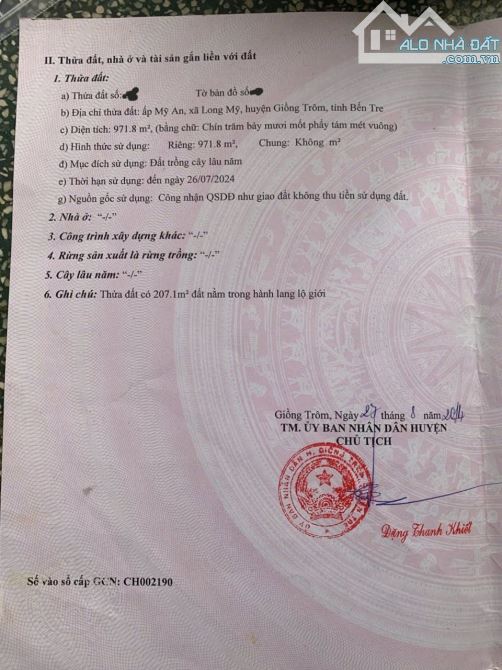 ALO NHÀ ĐẤT
II. Thửa đất, nhà ở và tài sản gắn liền với đất
1. Thửa đất:
a) Thửa đất số: Tờ bản đồ số
b) Địa chỉ thửa đất: ấp Mỹ An, xã Long Mỹ, huyện Giồng Trôm, tỉnh Bến Tre
c) Diện tích: 971.8 m², (bằng chữ: Chín trăm bảy mươi mốt phẩy tám mét vuông)
d) Hình thức sử dụng: Riêng: 971.8 m², Chung: Không m²
đ) Mục đích sử dụng: Đất trồng cây lâu năm
e) Thời hạn sử dụng: đến ngày 26/07/2024
g) Nguồn gốc sử dụng: Công nhận QSDĐ như giao đất không thu tiền sử dụng đất.
2. Nhà ở: "-/-"
3. Công trình xây dựng khác: "-/-"
4. Rừng sản xuất là rừng trồng: "-/-"
5. Cây lâu năm: "-/-"
6. Ghi chú: Thửa đất có 207.1m² đất nằm trong hành lang lộ giới
Giồng Trôm, Ngày 27 tháng 8 năm 2014
TM. ỦY BAN NHÂN DÂN HUYỆN
CHỦ TỊCH
ỦY BAN NHÂN DÂN H. GIỒNG TRÔM
Đặng Thanh Khiết
Số vào sổ cấp GCN: CH002190